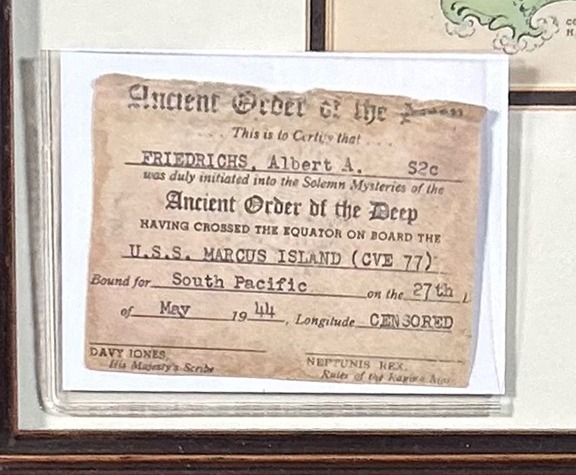 CO
H.
Ancient Order of the Deep
This is to Certify that
FRIEDRICHS, Albert A. S2c
was duly initiated into the Solemn Mysteries of the
Ancient Order of the Deep
HAVING CROSSED THE EQUATOR ON BOARD THE
U.S.S. MARCUS ISLAND (CVE 77)
Bound for South Pacific on the 27th
of May 1944, Longitude CENSORED
DAVY JONES, NEPTUNIS REX,
His Majesty's Scribe Ruler of the Raging Main